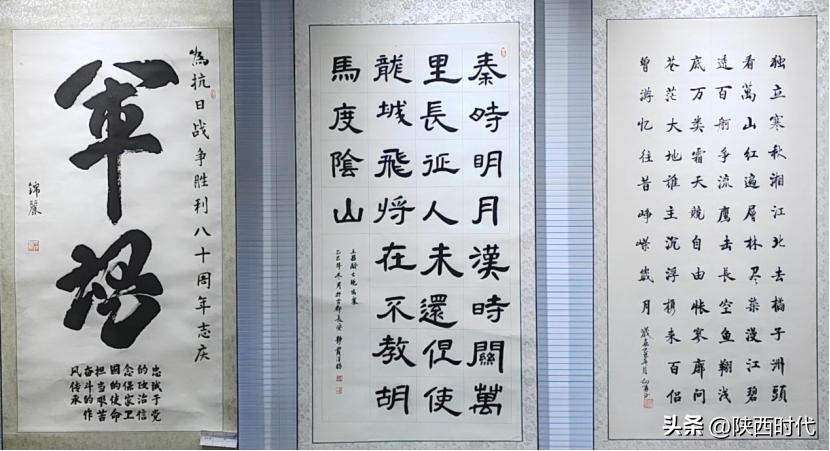 為抗日战争胜利八十周年志庆
軍魂
忠诚于党
的政治信
念保家卫
國的使命
担当艰苦
奋斗的作
风传承
秦時明月漢時關萬
里長征人未還但使
龍城飛將在不教胡
馬度陰山
王昌齡七絕出塞
乙巳年冬月於古都長安
独立寒秋湘江北去橘子洲頭
看萬山红遍層林尽染漫江碧
透百舸争流鷹击長空鱼翔浅
底万类霜天競自由怅寥廓问
苍茫大地谁主沉浮携来百侣
曾游忆往昔峥嵘歲月
头条 @陕西时代